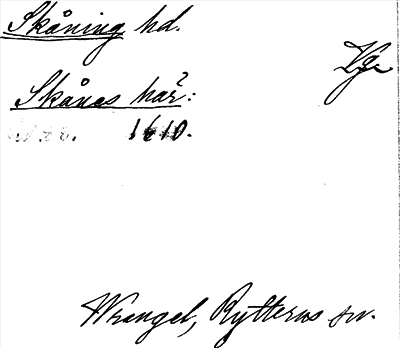 Skåning hd.
Vg.
Skånes här:
1610.
Wrangel, Rytterns sv.